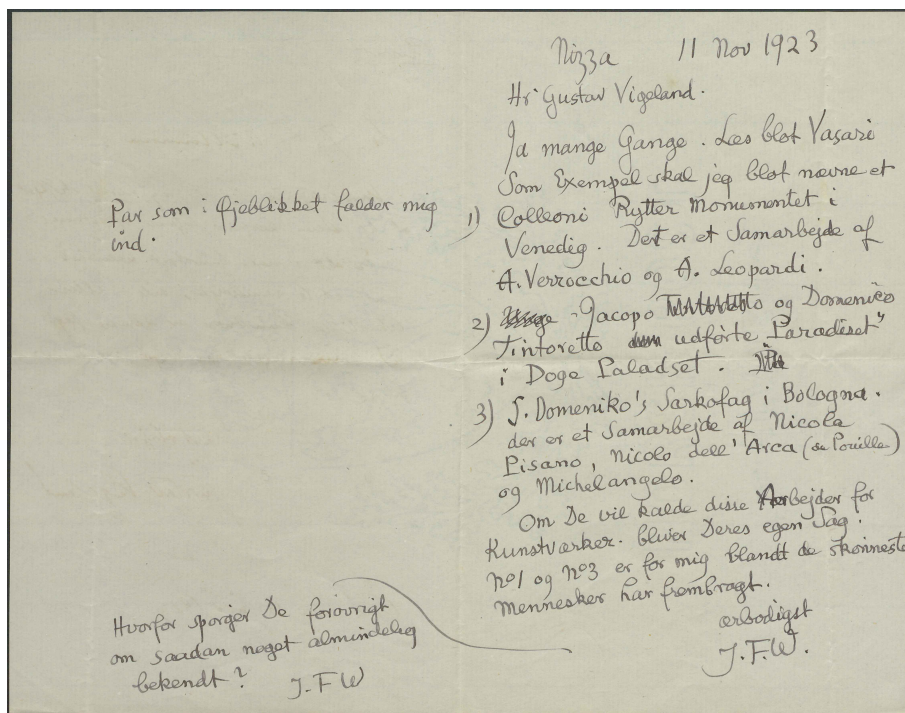 Nizza 11 Nov 1923
Hr Gustav Vigeland.
Ja mange Gange. Læs blot Vasari
Som Exempel skal jeg blot nævne et
Par som i Øjeblikket falder mig
ind.
1) Colleoni Rytter Monumentet i
Venedig. Det er et Samarbejde af
A. Verrocchio og A. Leopardi.
2) Jacopo og Domenico
Tintoretto udførte Paradiset"
i Doge Paladset.
3) S. Domeniko's Sarkofag i Bologna.
der er et Samarbejde af Nicola
Pisano, Nicolo dell' Arca (de Pouille)
og Michelangelo.
Om De vil kalde disse Arbejder for
Kunstværker. bliver Deres egen Sag.
No1 og No3 er for mig blandt de skønneste
Mennesker har frembragt.
ærbødigst
J.F.W.
Hvorfor spørger De forøvrigt
om saadan noget almindelig
bekendt? J.FW